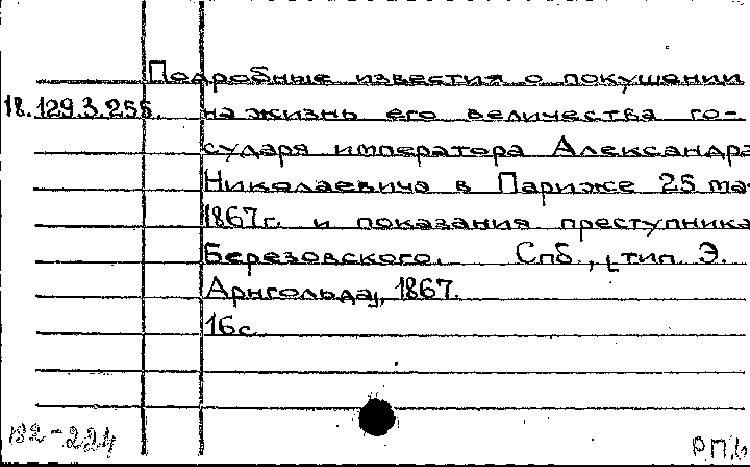 Подробные известия о покушении
18.129.3.255. на жизнь его величества го-
сударя императора Александра
Николаевича в Париже 25 ма
1867 г. и показания преступника
Березовского. – Спб., [тип. Э.
Арнгольда], 1867.
16 с
РП